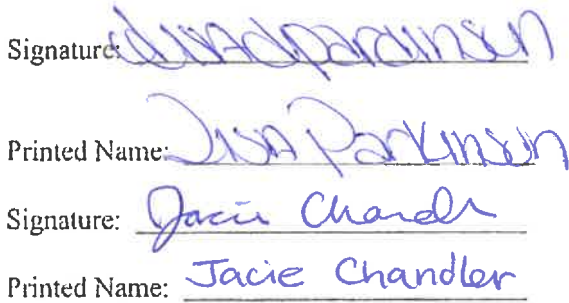 Signature: Lisa d Parkinson
Printed Name: Lisa Parkinson
Signature: Jacie Chandler
Printed Name: Jacie Chandler